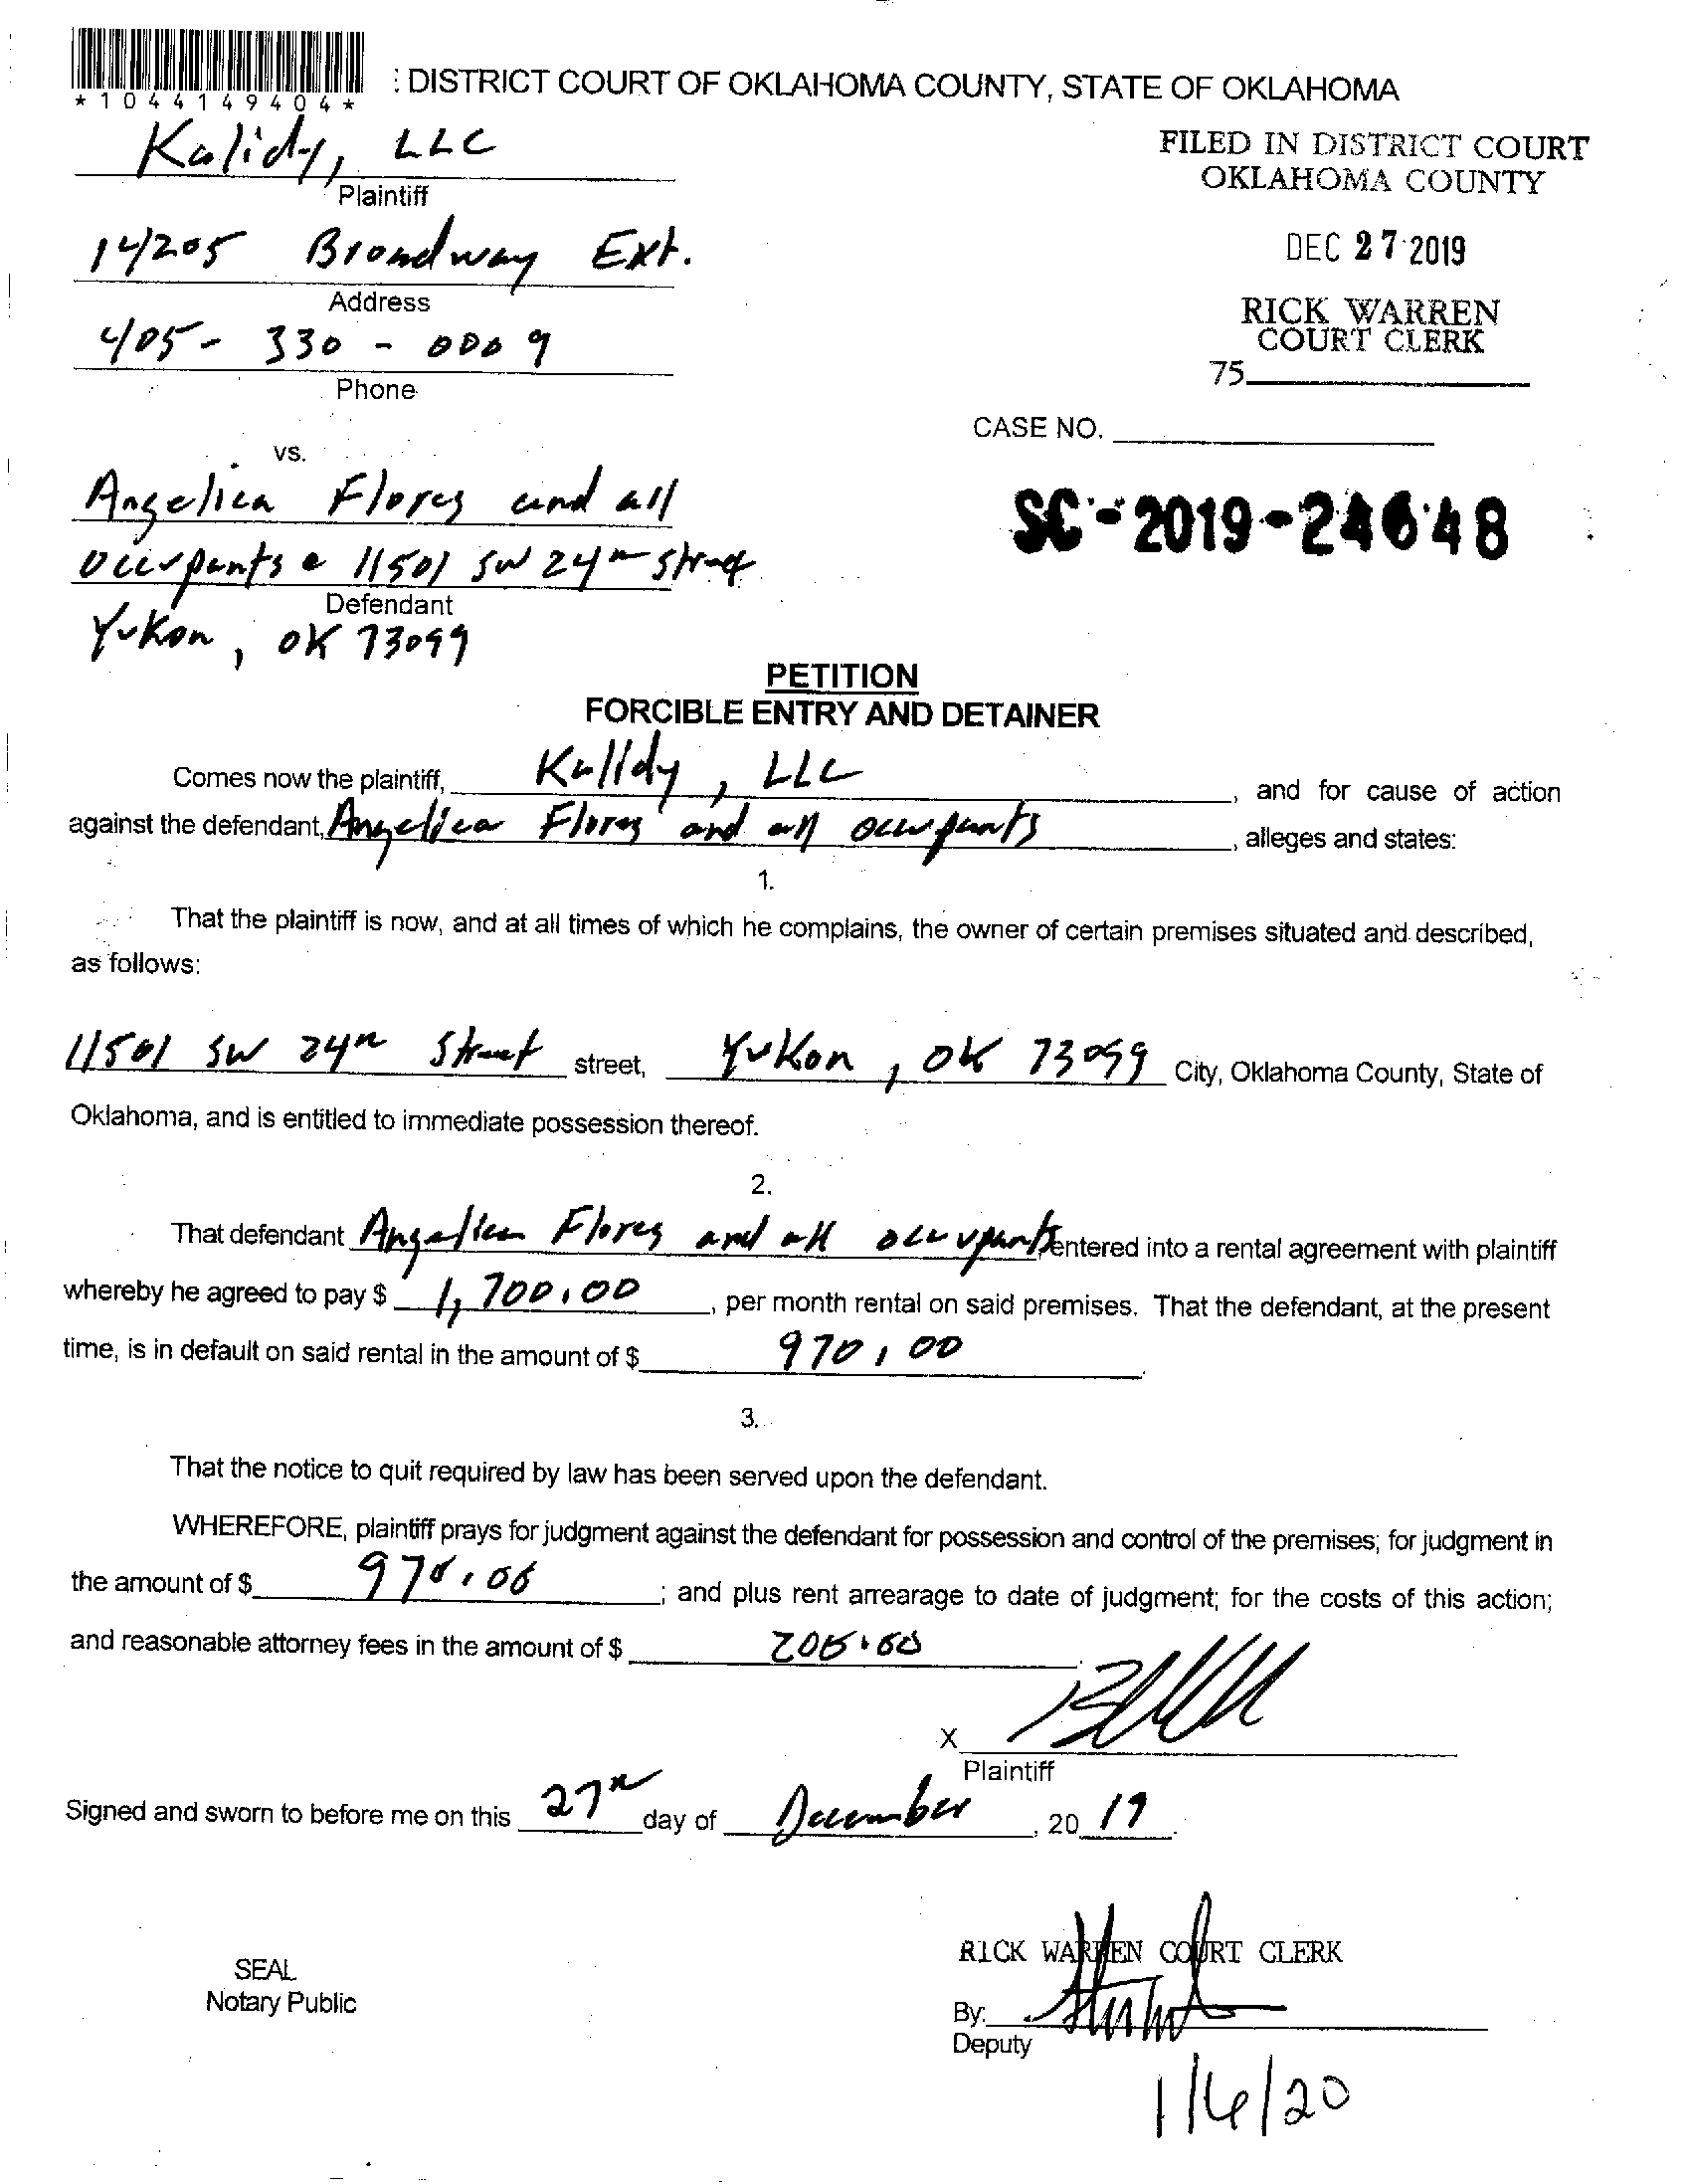 *1044149404*
: DISTRICT COURT OF OKLAHOMA COUNTY, STATE OF OKLAHOMA
Kalidy, LLC
Plaintiff
FILED IN DISTRICT COURT
OKLAHOMA COUNTY
14205 Broadway Ext.
Address
DEC 27 2019
405-330-0009
Phone
RICK WARREN
COURT CLERK
75
CASE NO.
vs.
Angelica Flores and all
SC-2019-24648
occupants @ 11501 SW 24th Street
Defendant
Yukon, OK 73099
PETITION
FORCIBLE ENTRY AND DETAINER
Comes now the plaintiff, Kalidy, LLC, and for cause of action
against the defendant, Angelica Flores and all occupants, alleges and states:
1.
That the plaintiff is now, and at all times of which he complains, the owner of certain premises situated and described,
as follows:
11501 SW 24th Street street, Yukon, OK 73099 City, Oklahoma County, State of
Oklahoma, and is entitled to immediate possession thereof.
2.
That defendant Angelica Flores and all occupants entered into a rental agreement with plaintiff
whereby he agreed to pay $ 1,700.00, per month rental on said premises. That the defendant, at the present
time, is in default on said rental in the amount of $ 970.00
3.
That the notice to quit required by law has been served upon the defendant.
WHEREFORE, plaintiff prays for judgment against the defendant for possession and control of the premises; for judgment in
the amount of $ 970.00; and plus rent arrearage to date of judgment; for the costs of this action;
and reasonable attorney fees in the amount of $ 200.00
X
Plaintiff
Signed and sworn to before me on this 27th day of December, 2019.
RICK WARREN COURT CLERK
SEAL
Notary Public
By:
Deputy
1/6/20